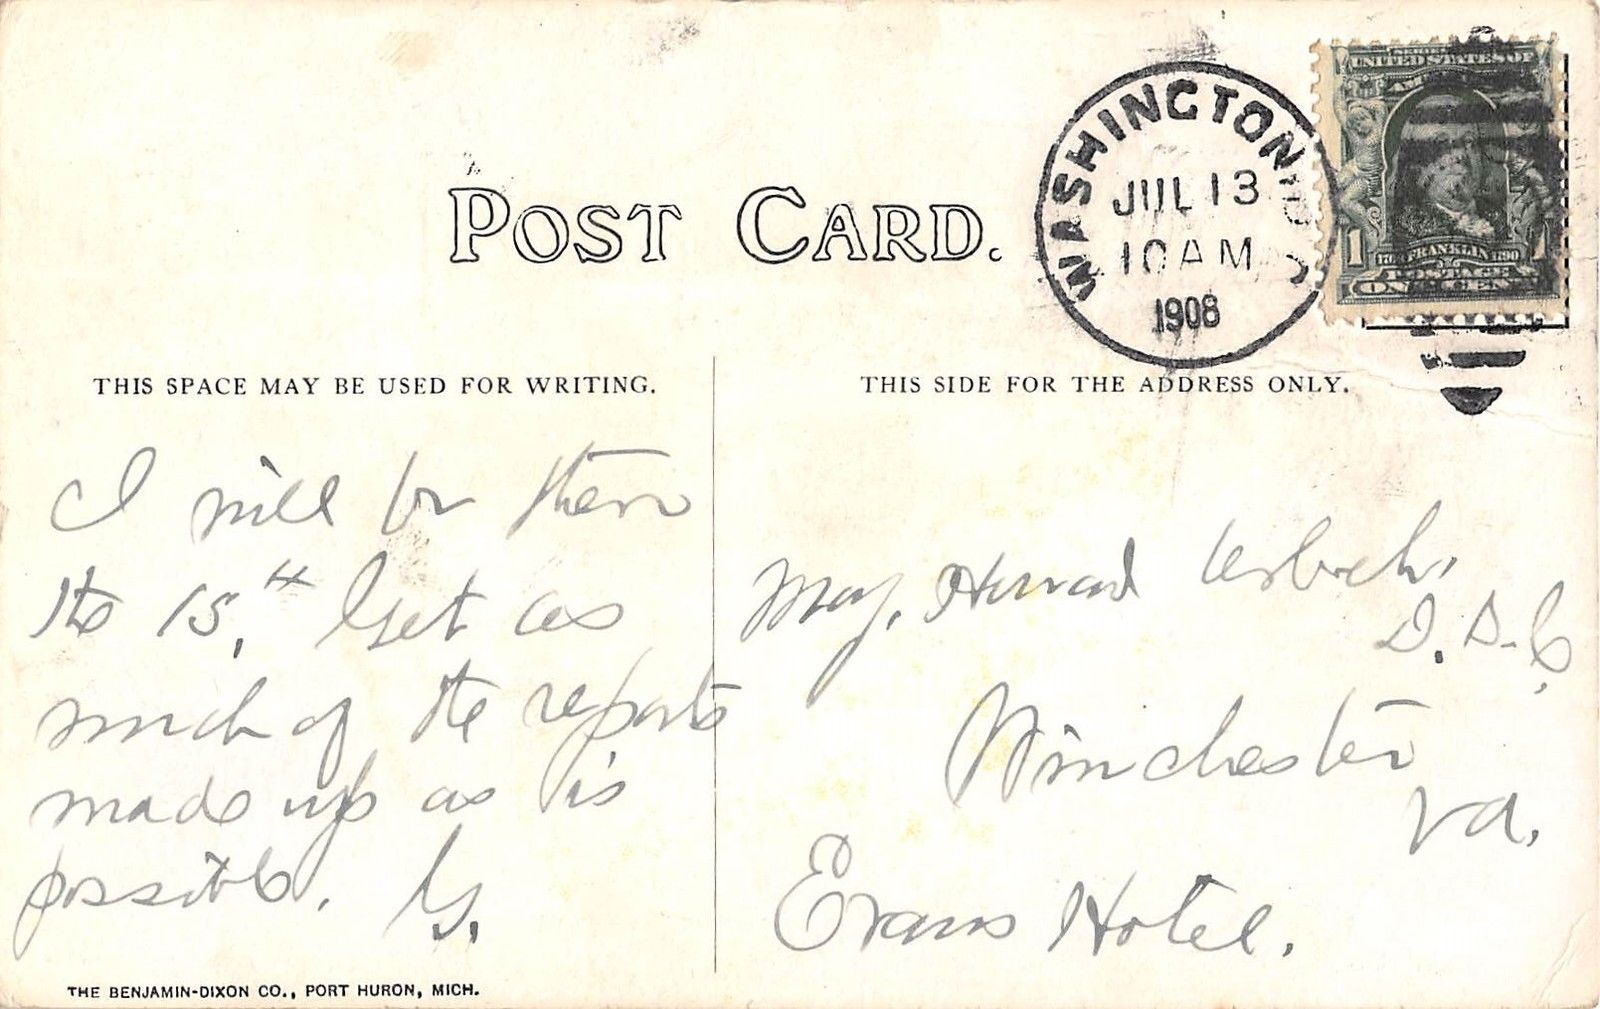 POST CARD.
WASHINGTON, D.C.
JUL 13
10 AM
1908
UNITED STATES OF
AMERICA
1
FRANKLIN
POSTAGE
ONE CENT
THIS SPACE MAY BE USED FOR WRITING.
I will be there
the 15,th Get as
much of the reports
made up as is
possible. G.
THIS SIDE FOR THE ADDRESS ONLY.
Maj. Howard
D.
Winchester
Va.
Evans Hotel.
THE BENJAMIN-DIXON CO., PORT HURON, MICH.